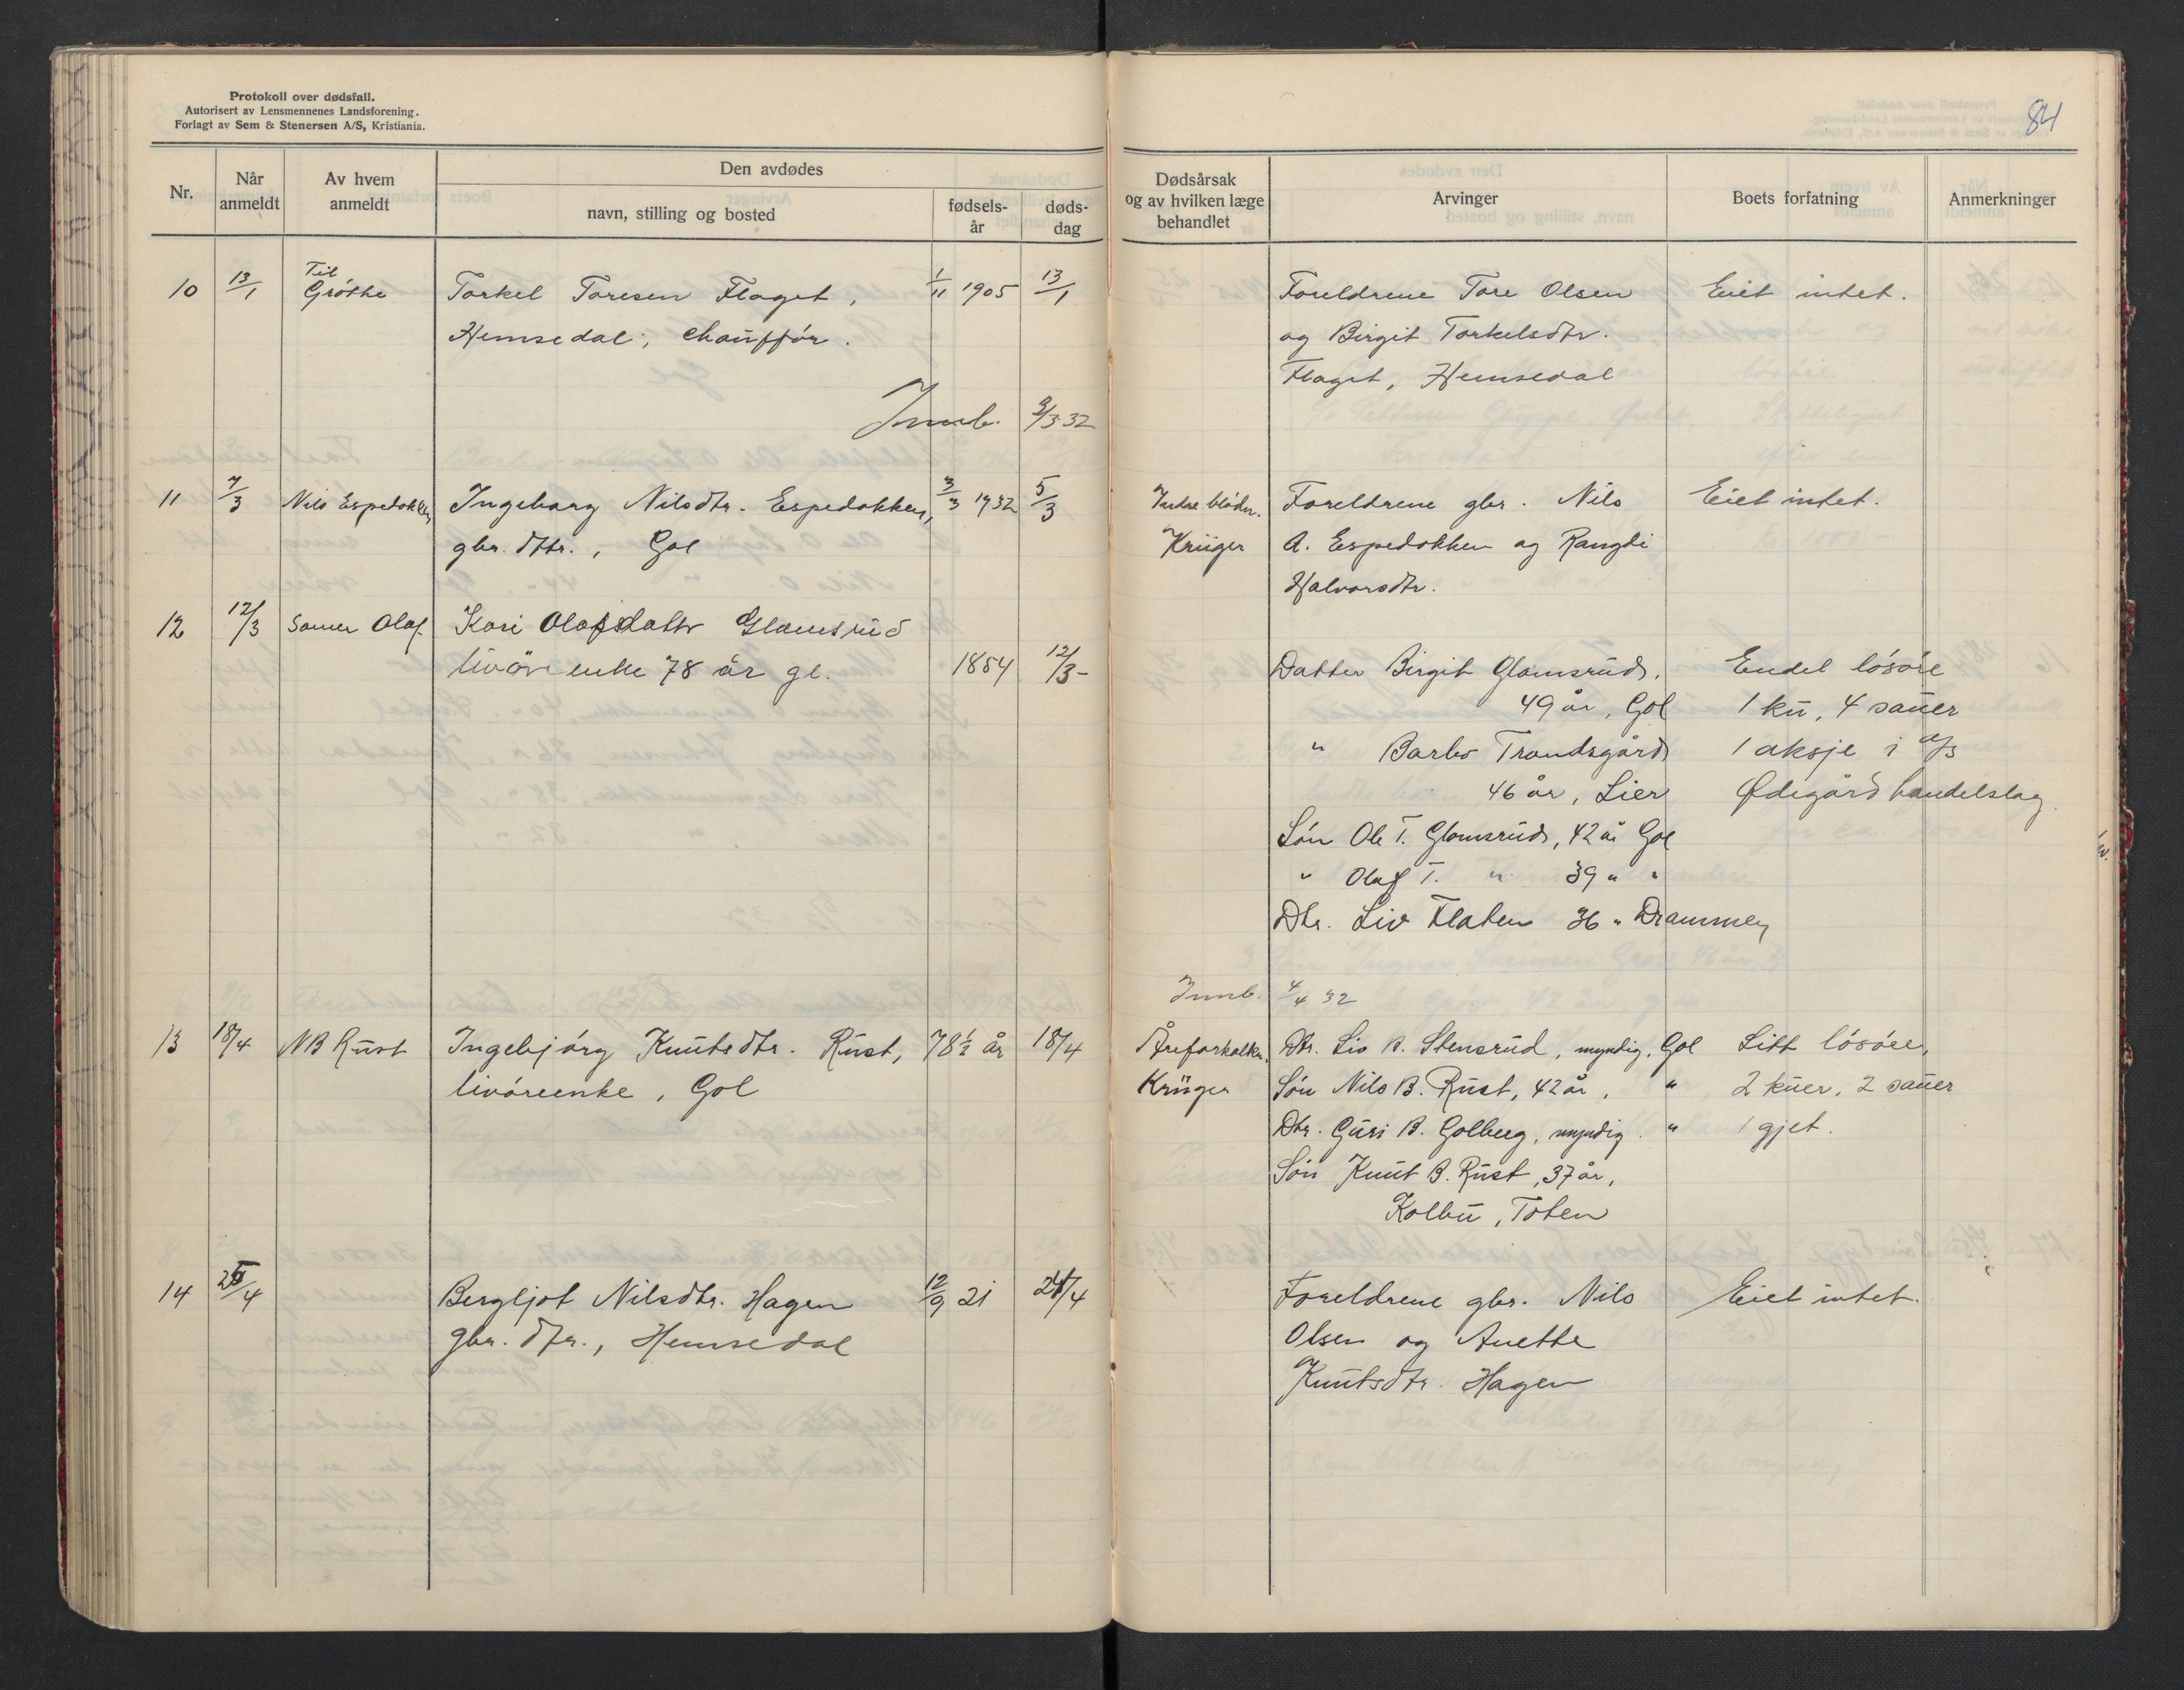 Protokoll over dødsfall.
Autorisert av Lensmennenes Landsforening.
Forlagt av Sem & Stenersen A/S, Kristiania.
84
Nr.
Når anmeldt
Av hvem anmeldt
Den avdødes
navn, stilling og bosted
fødsels-år
døds-dag
Dødsårsak og av hvilken læge behandlet
Arvinger
Boets forfatning
Anmerkninger
10 13/1 Til Grøthe Torkel Toresen Flaget, 1/11 1905 13/1 Foreldrene Tore Olsen Eiet intet.
Hemsedal, chauffør. og Birgit Torkelsdtr.
Flaget, Hemsedal
Innb. 3/3 32
11 7/3 Nils Espedokken Ingeborg Nilsdtr. Espedokken, 3/3 1932 5/3 Indre blødn. Foreldrene gbr. Nils Eiet intet.
gbr. dtr., Gol Krüger A. Espedokken og Rangdi
Halvorsdtr.
12 12/3 Olaf Kari Olafsdatter Glomsrud
livøreenke 78 år gl. 1854 12/3 Datter Birgit Glomsrud, Endel løsøre
49 år, Gol 1 ku, 4 sauer
" Barbro Trondsgård 1 aksje i a/s
46 år, Lier Ødegård handelslag.
Søn Ole T. Glomsrud, 42 år Gol
" Olaf T. " 39 " "
Dtr. Liv Flaten 36 " Drammen
Innb. 4/4 32
13 18/4 NB Rust Ingebjørg Knutsdtr. Rust, 78 ½ år 18/4 Åreforkalkn. Dtr. Liv B. Stensrud, myndig, Gol Litt løsøre,
livøreenke, Gol Krüger Søn Nils B. Rust, 42 år, " 2 kuer, 2 sauer
Dtr. Guri B. Golberg, myndig. " 1 gjet.
Søn Knut B. Rust, 37 år,
Kolbu, Toten
14 25/4 Bergljot Nilsdtr. Hagen 12/9 21 24/4 Foreldrene gbr. Nils Eiet intet.
gbr. dtr., Hemsedal Olsen og Anette
Knutsdtr. Hagen